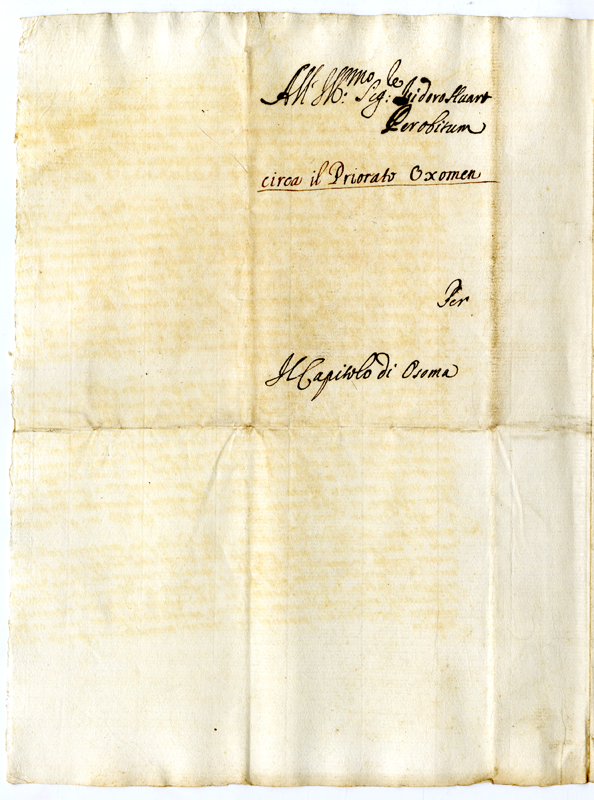 All' Ill:mo Sig:le Isidoro Stuart
Perobitum
circa il Priorato Oxomen
Per
Il Capitolo di Osoma